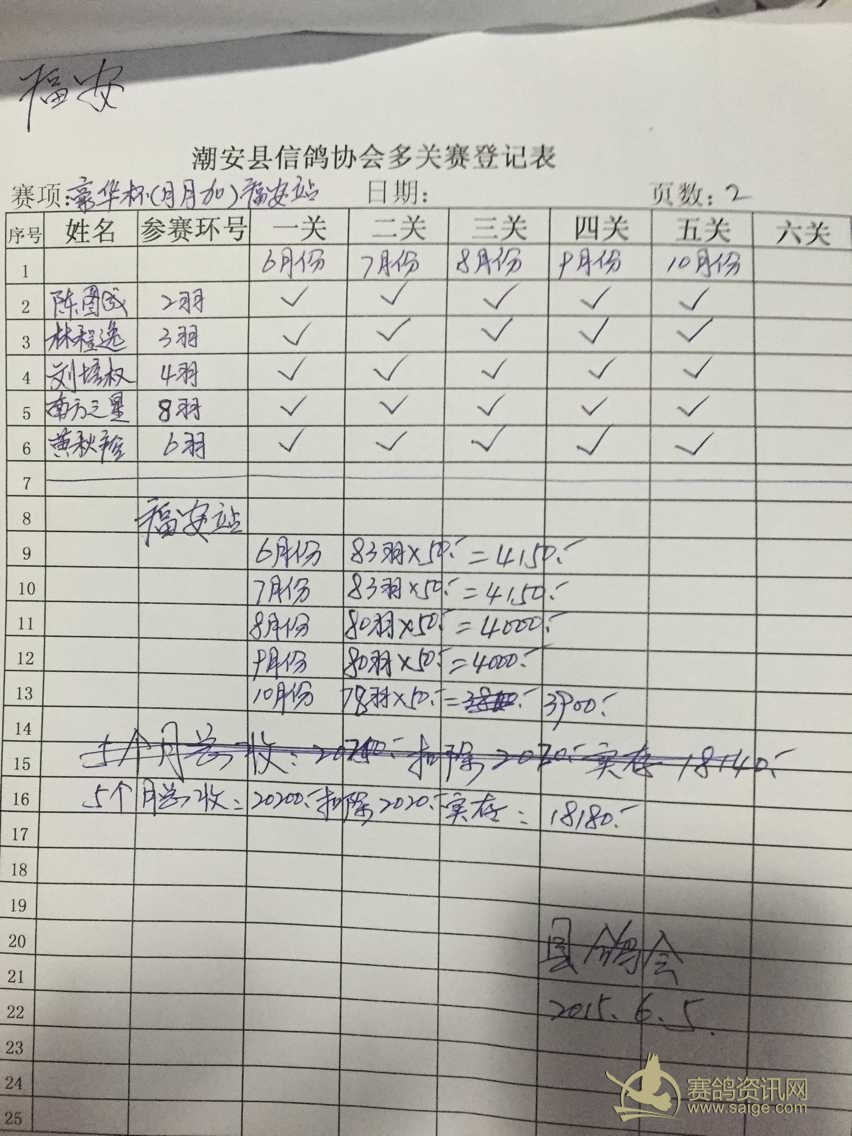 福安
潮安县信鸽协会多关赛登记表
赛项:豪华杯(月月加)福安站 日期: 页数:2
序号 姓名 参赛环号 一关 二关 三关 四关 五关 六关
1 6月份 7月份 8月份 9月份 10月份
2 陈图武 2羽 ✓ ✓ ✓ ✓ ✓
3 林程逸 3羽 ✓ ✓ ✓ ✓ ✓
4 刘培权 4羽 ✓ ✓ ✓ ✓ ✓
5 南方之星 8羽 ✓ ✓ ✓ ✓ ✓
6 黄秋 6羽 ✓ ✓ ✓ ✓ ✓
7
8 福安站
9 6月份 83羽×50.- = 4150.-
10 7月份 83羽×50.- = 4150.-
11 8月份 80羽×50.- = 4000.-
12 9月份 80羽×50.- = 4000.-
13 10月份 78羽×50.- = 3900.-
14
15 5个月总收: 扣除 实存 18140.-
16 5个月总收: 20200.- 扣除2020.- 实存: 18180.-
17
18
19
20 县鸽会
21
22 2015.6.5.
23
24
25
赛鸽资讯网
www.saige.com